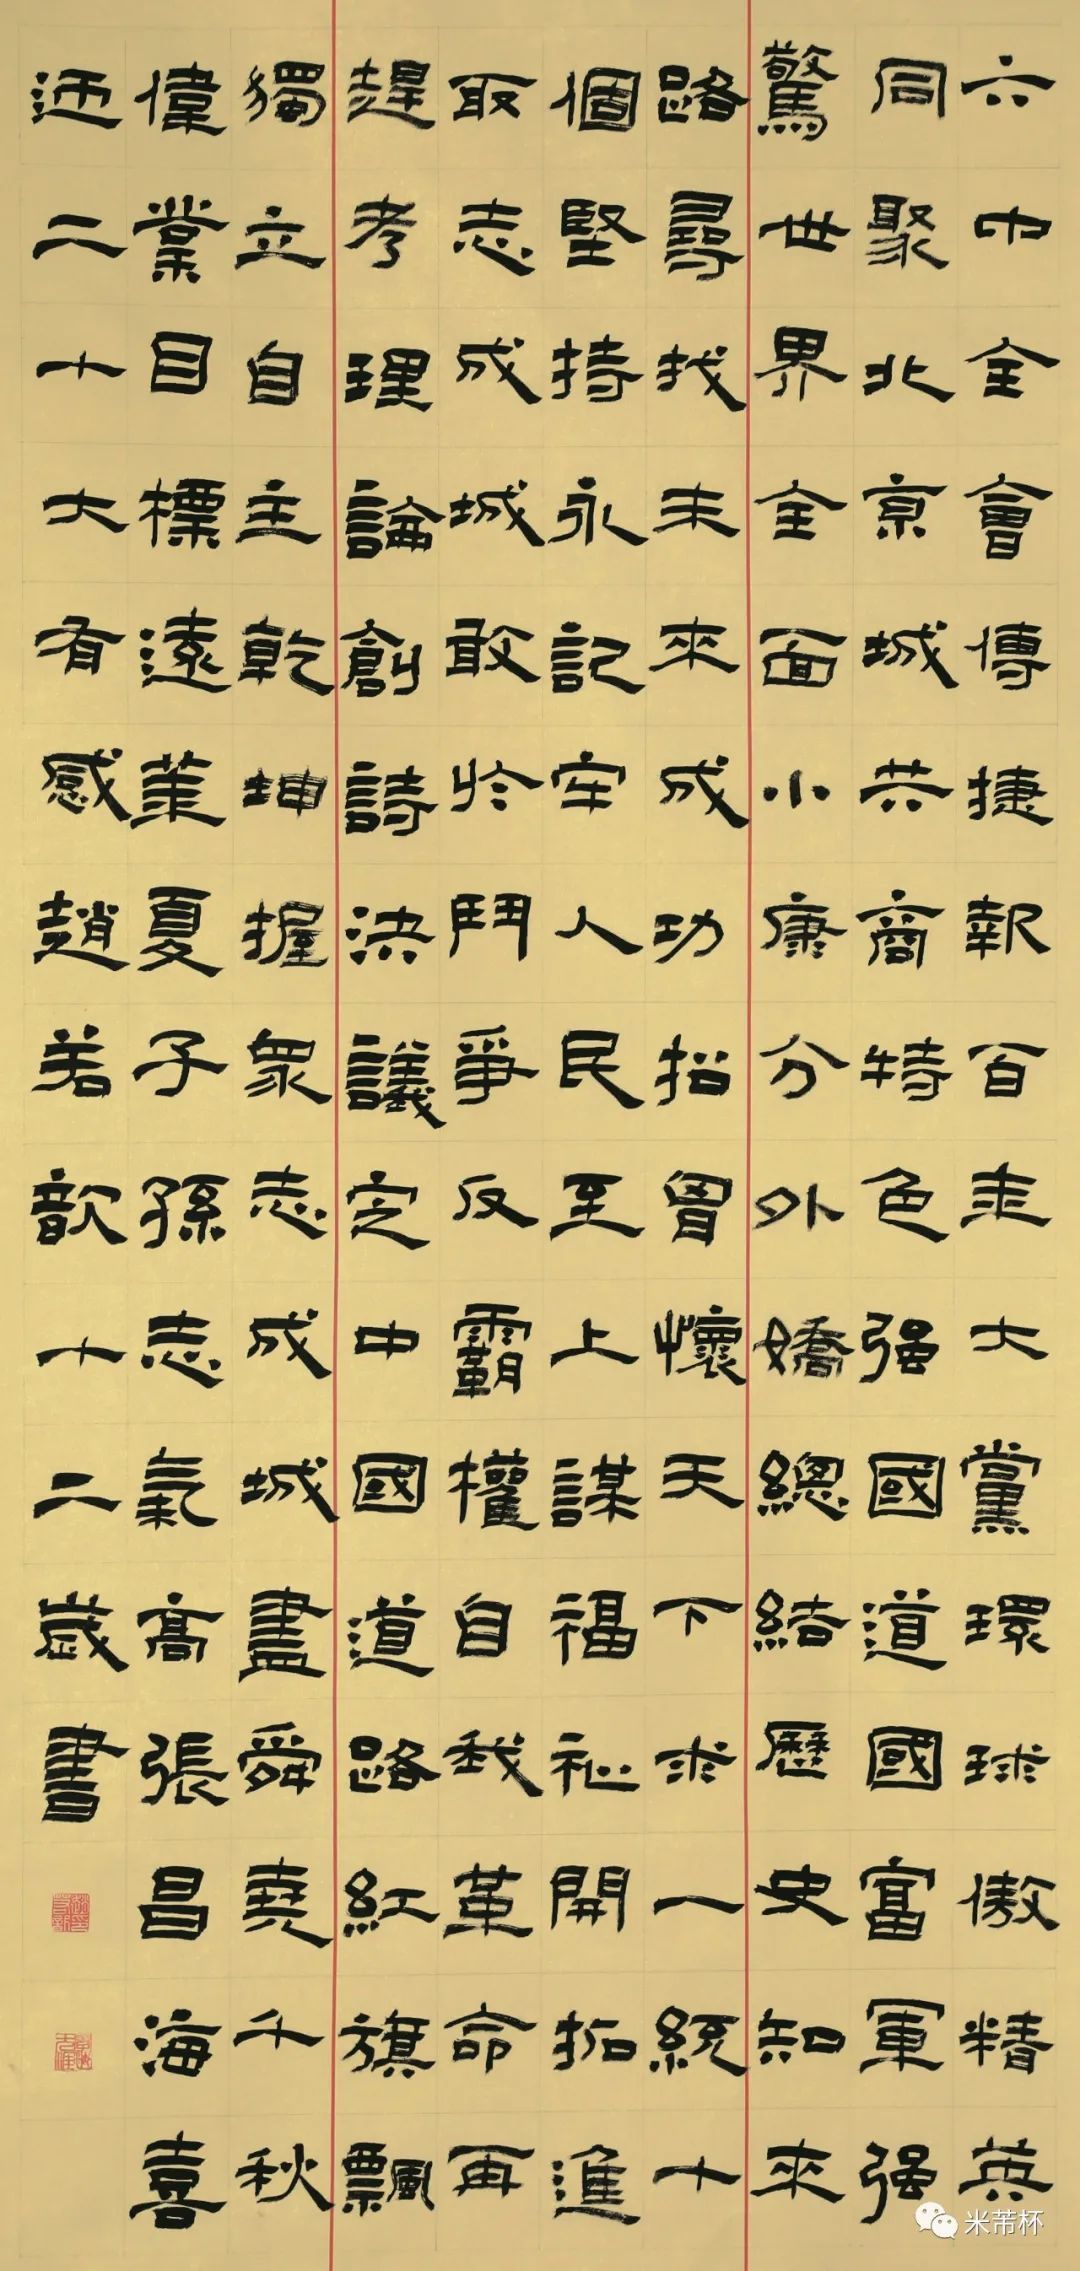 六中全會傳捷報百年大黨環球傲精英
同聚北京城共商特色强國道國富軍强
驚世界全面小康分外嬌總結歷史知來
路尋找未來成功招胷懷天下求一統十
個堅持永記牢人民至上謀福祉開拓進
取志成城敢於鬥爭反霸權自我革命再
趕考理論創詩決議定中國道路紅旗飄
獨立自主乾坤握眾志成城盡舜堯千秋
偉業目標遠華夏子孫志氣高張昌海喜
迎二十大有感趙若歆十二歲書
米芾杯